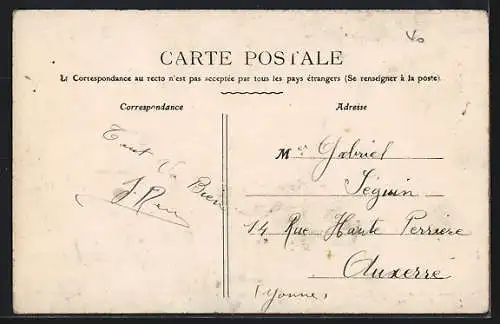 CARTE POSTALE
La Correspondance au recto n'est pas acceptée par tous les pays étrangers (Se renseigner à la poste)
Correspondance
Adresse
Tout Va Bien
Mr Gabriel
Séguin
14 Rue Haute Perrière
Auxerre
(Yonne)